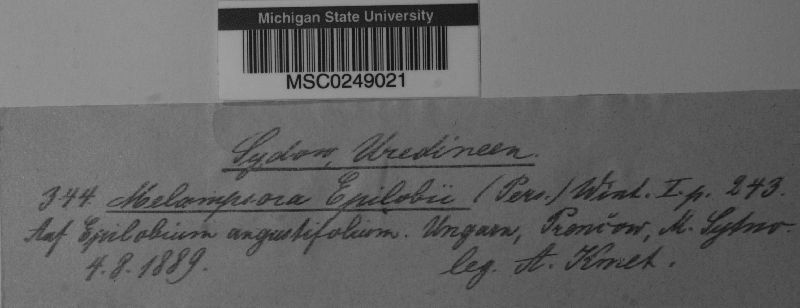 Michigan State University
MSC0249021
Sydow, Uredineen.
344. Melampsora Epilobii (Pers.) Wint. I. p. 243.
Auf Epilobium angustifolium. Ungarn, Prenčow, M. Sytno.
4.8.1889. leg. A. Kmet.